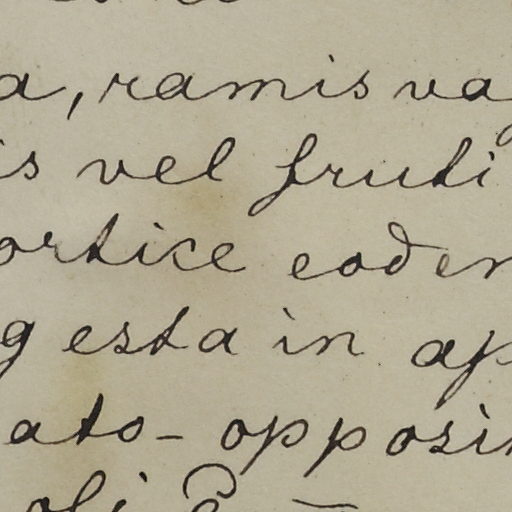 a, ramis va
is vel fruti
ortice eodem
gesta in ap
ato- opposi